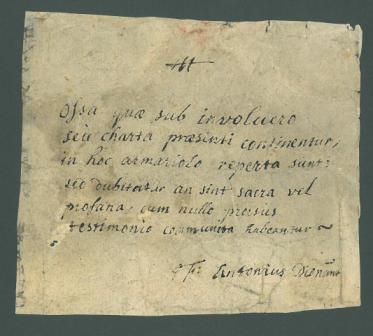 Ossa quæ sub involucro
seu charta præsenti continentur,
in hoc armariolo reperta sunt:
sed dubitatur an sint sacra vel
profana, cum nullo prorsus
testimonio communita habeantur ~
Fr: Antonius